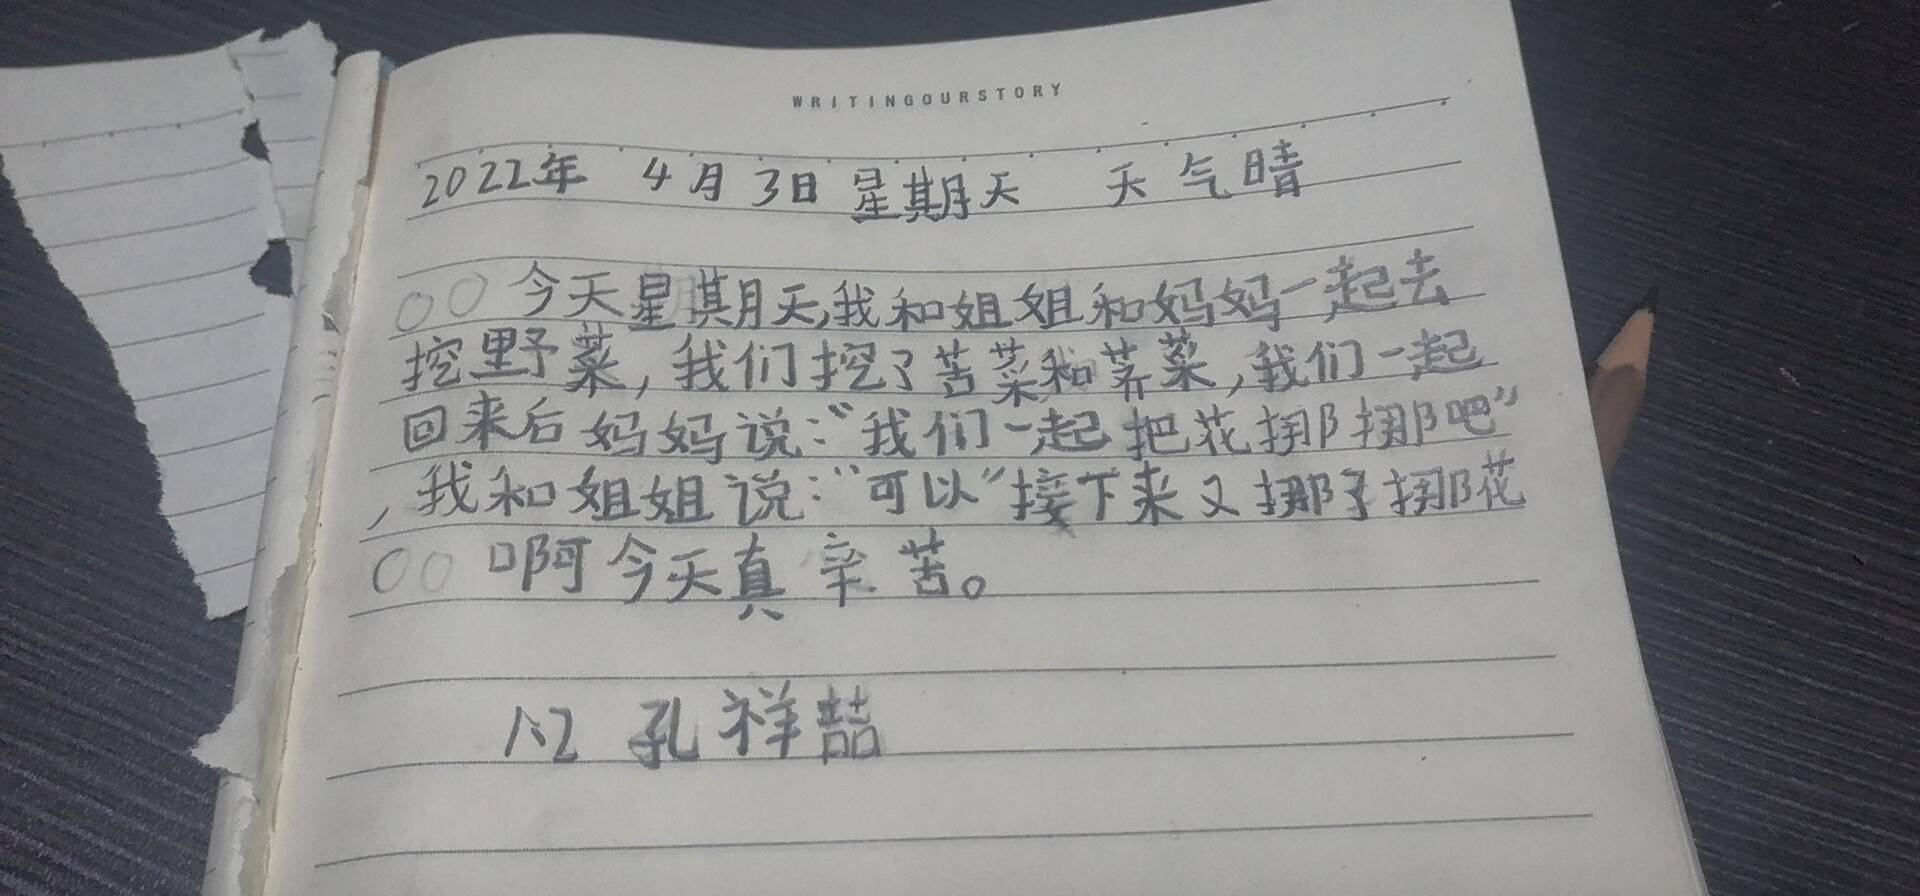 WRITINGOURSTORY
2022年 4月3日 星期天 天气晴
○○今天星期天,我和姐姐和妈妈一起去
挖野菜,我们挖了苦菜和荠菜,我们一起
回来后妈妈说:“我们一起把花挪挪吧”
,我和姐姐说:“可以”接下来又挪了挪花
○○ 啊今天真辛苦。
孔祥喆